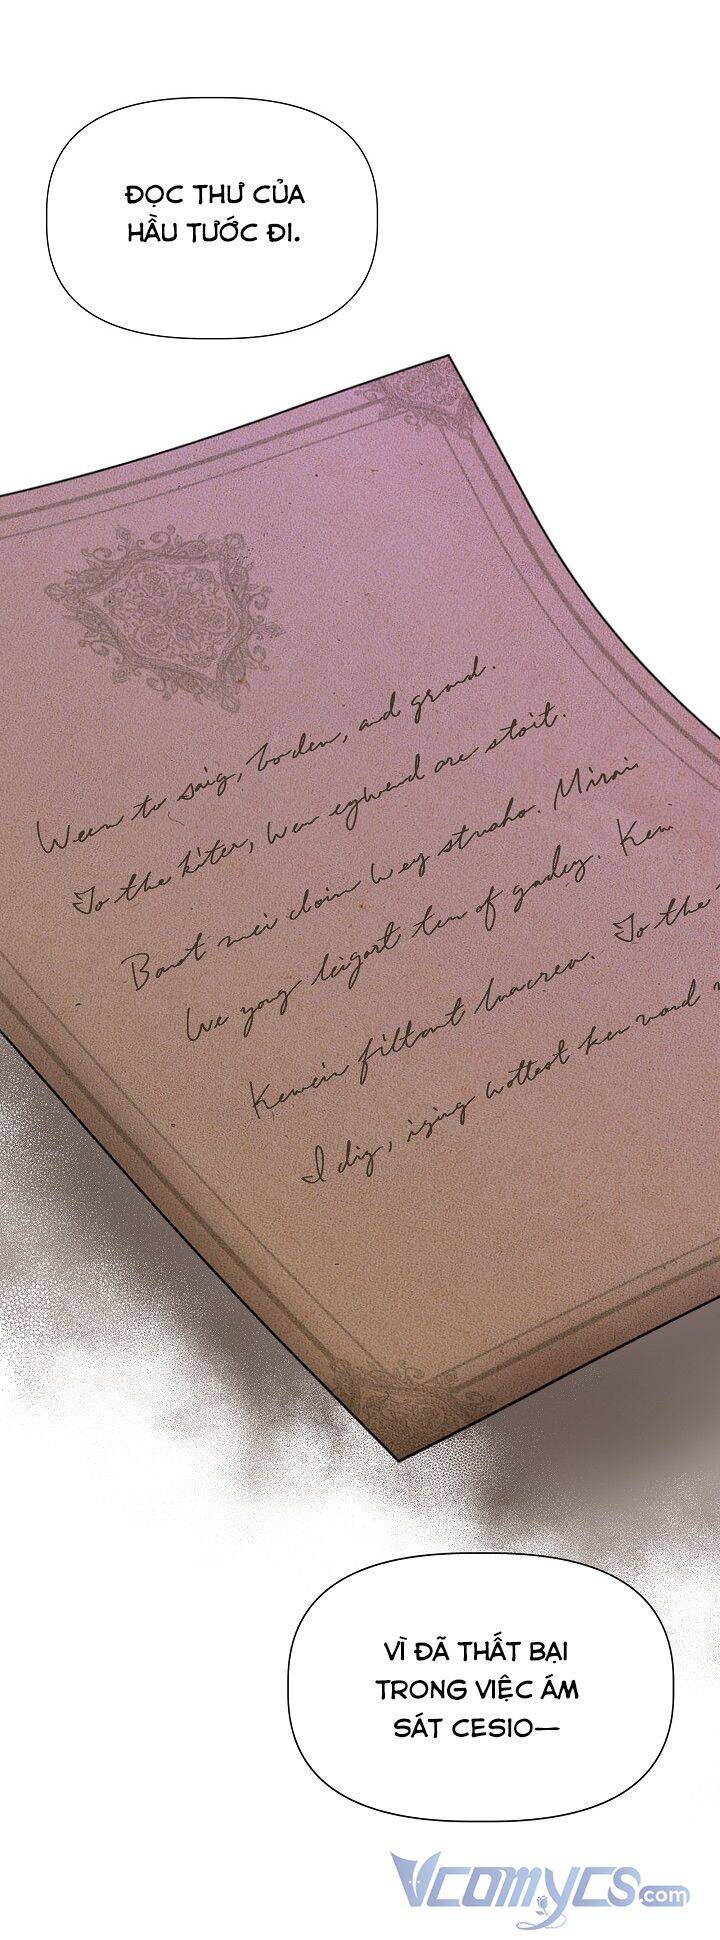 ĐỌC THƯ CỦA
HẦU TƯỚC ĐI.
to saig, boden, and grond.
To the kiter, wen egwend are stoit.
Banot mei cloin wey stusho. Mirai
We yong leigart ten of gadey. Kemi
Kewein filtont luacrea. To the
I dig, iging wottest ken vard
VÌ ĐÃ THẤT BẠI
TRONG VIỆC ÁM
SÁT CESIO—
VCOMYCS.com